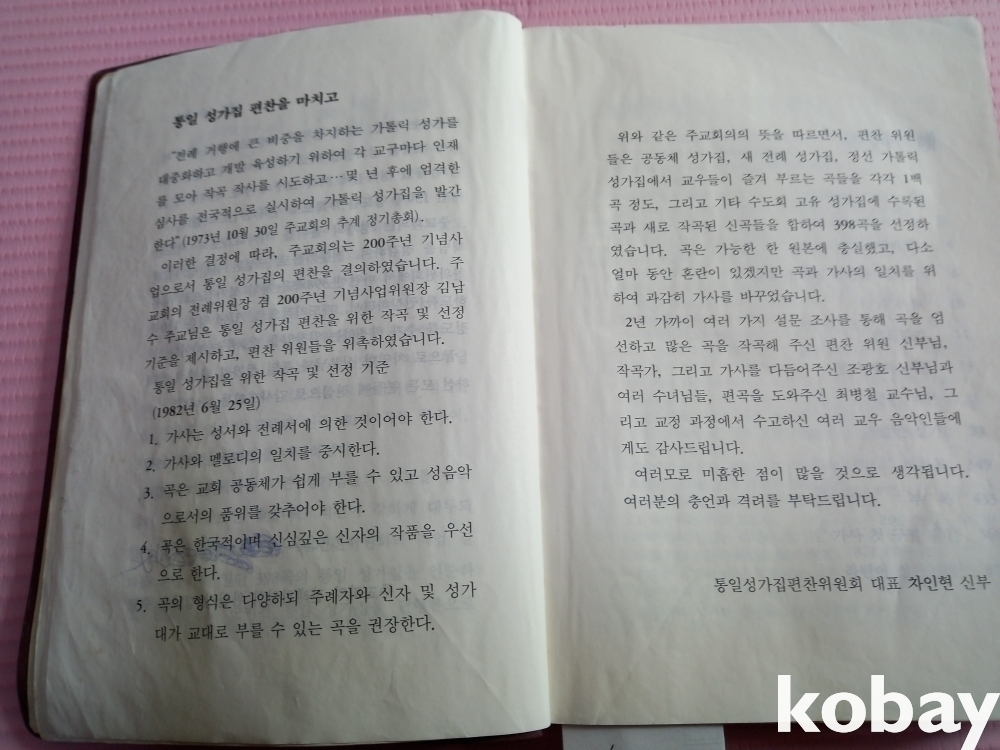 통일 성가집 편찬을 마치고
"전례 거행에 큰 비중을 차지하는 가톨릭 성가를
대중화하고 개발 육성하기 위하여 각 교구마다 인재
를 모아 작곡 작사를 시도하고…몇 년 후에 엄격한
심사를 전국적으로 실시하여 가톨릭 성가집을 발간
한다"(1973년 10월 30일 주교회의 추계 정기총회).
이러한 결정에 따라, 주교회의는 200주년 기념사
업으로서 통일 성가집의 편찬을 결의하였습니다. 주
교회의 전례위원장 겸 200주년 기념사업위원장 김남
수 주교님은 통일 성가집 편찬을 위한 작곡 및 선정
기준을 제시하고, 편찬 위원들을 위촉하였습니다.
통일 성가집을 위한 작곡 및 선정 기준
(1982년 6월 25일)
1. 가사는 성서와 전례서에 의한 것이어야 한다.
2. 가사와 멜로디의 일치를 중시한다.
3. 곡은 교회 공동체가 쉽게 부를 수 있고 성음악
으로서의 품위를 갖추어야 한다.
4. 곡은 한국적이며 신심깊은 신자의 작품을 우선
으로 한다.
5. 곡의 형식은 다양하되 주례자와 신자 및 성가
대가 교대로 부를 수 있는 곡을 권장한다.
위와 같은 주교회의의 뜻을 따르면서, 편찬 위원
들은 공동체 성가집, 새 전례 성가집, 정선 가톨릭
성가집에서 교우들이 즐겨 부르는 곡들을 각각 1백
곡 정도, 그리고 기타 수도회 고유 성가집에 수록된
곡과 새로 작곡된 신곡들을 합하여 398곡을 선정하
였습니다. 곡은 가능한 한 원본에 충실했고, 다소
얼마 동안 혼란이 있겠지만 곡과 가사의 일치를 위
하여 과감히 가사를 바꾸었습니다.
2년 가까이 여러 가지 설문 조사를 통해 곡을 엄
선하고 많은 곡을 작곡해 주신 편찬 위원 신부님,
작곡가, 그리고 가사를 다듬어주신 조광호 신부님과
여러 수녀님들, 편곡을 도와주신 최병철 교수님, 그
리고 교정 과정에서 수고하신 여러 교우 음악인들에
게도 감사드립니다.
여러모로 미흡한 점이 많을 것으로 생각됩니다.
여러분의 충언과 격려를 부탁드립니다.
통일성가집편찬위원회 대표 차인현 신부
kobay